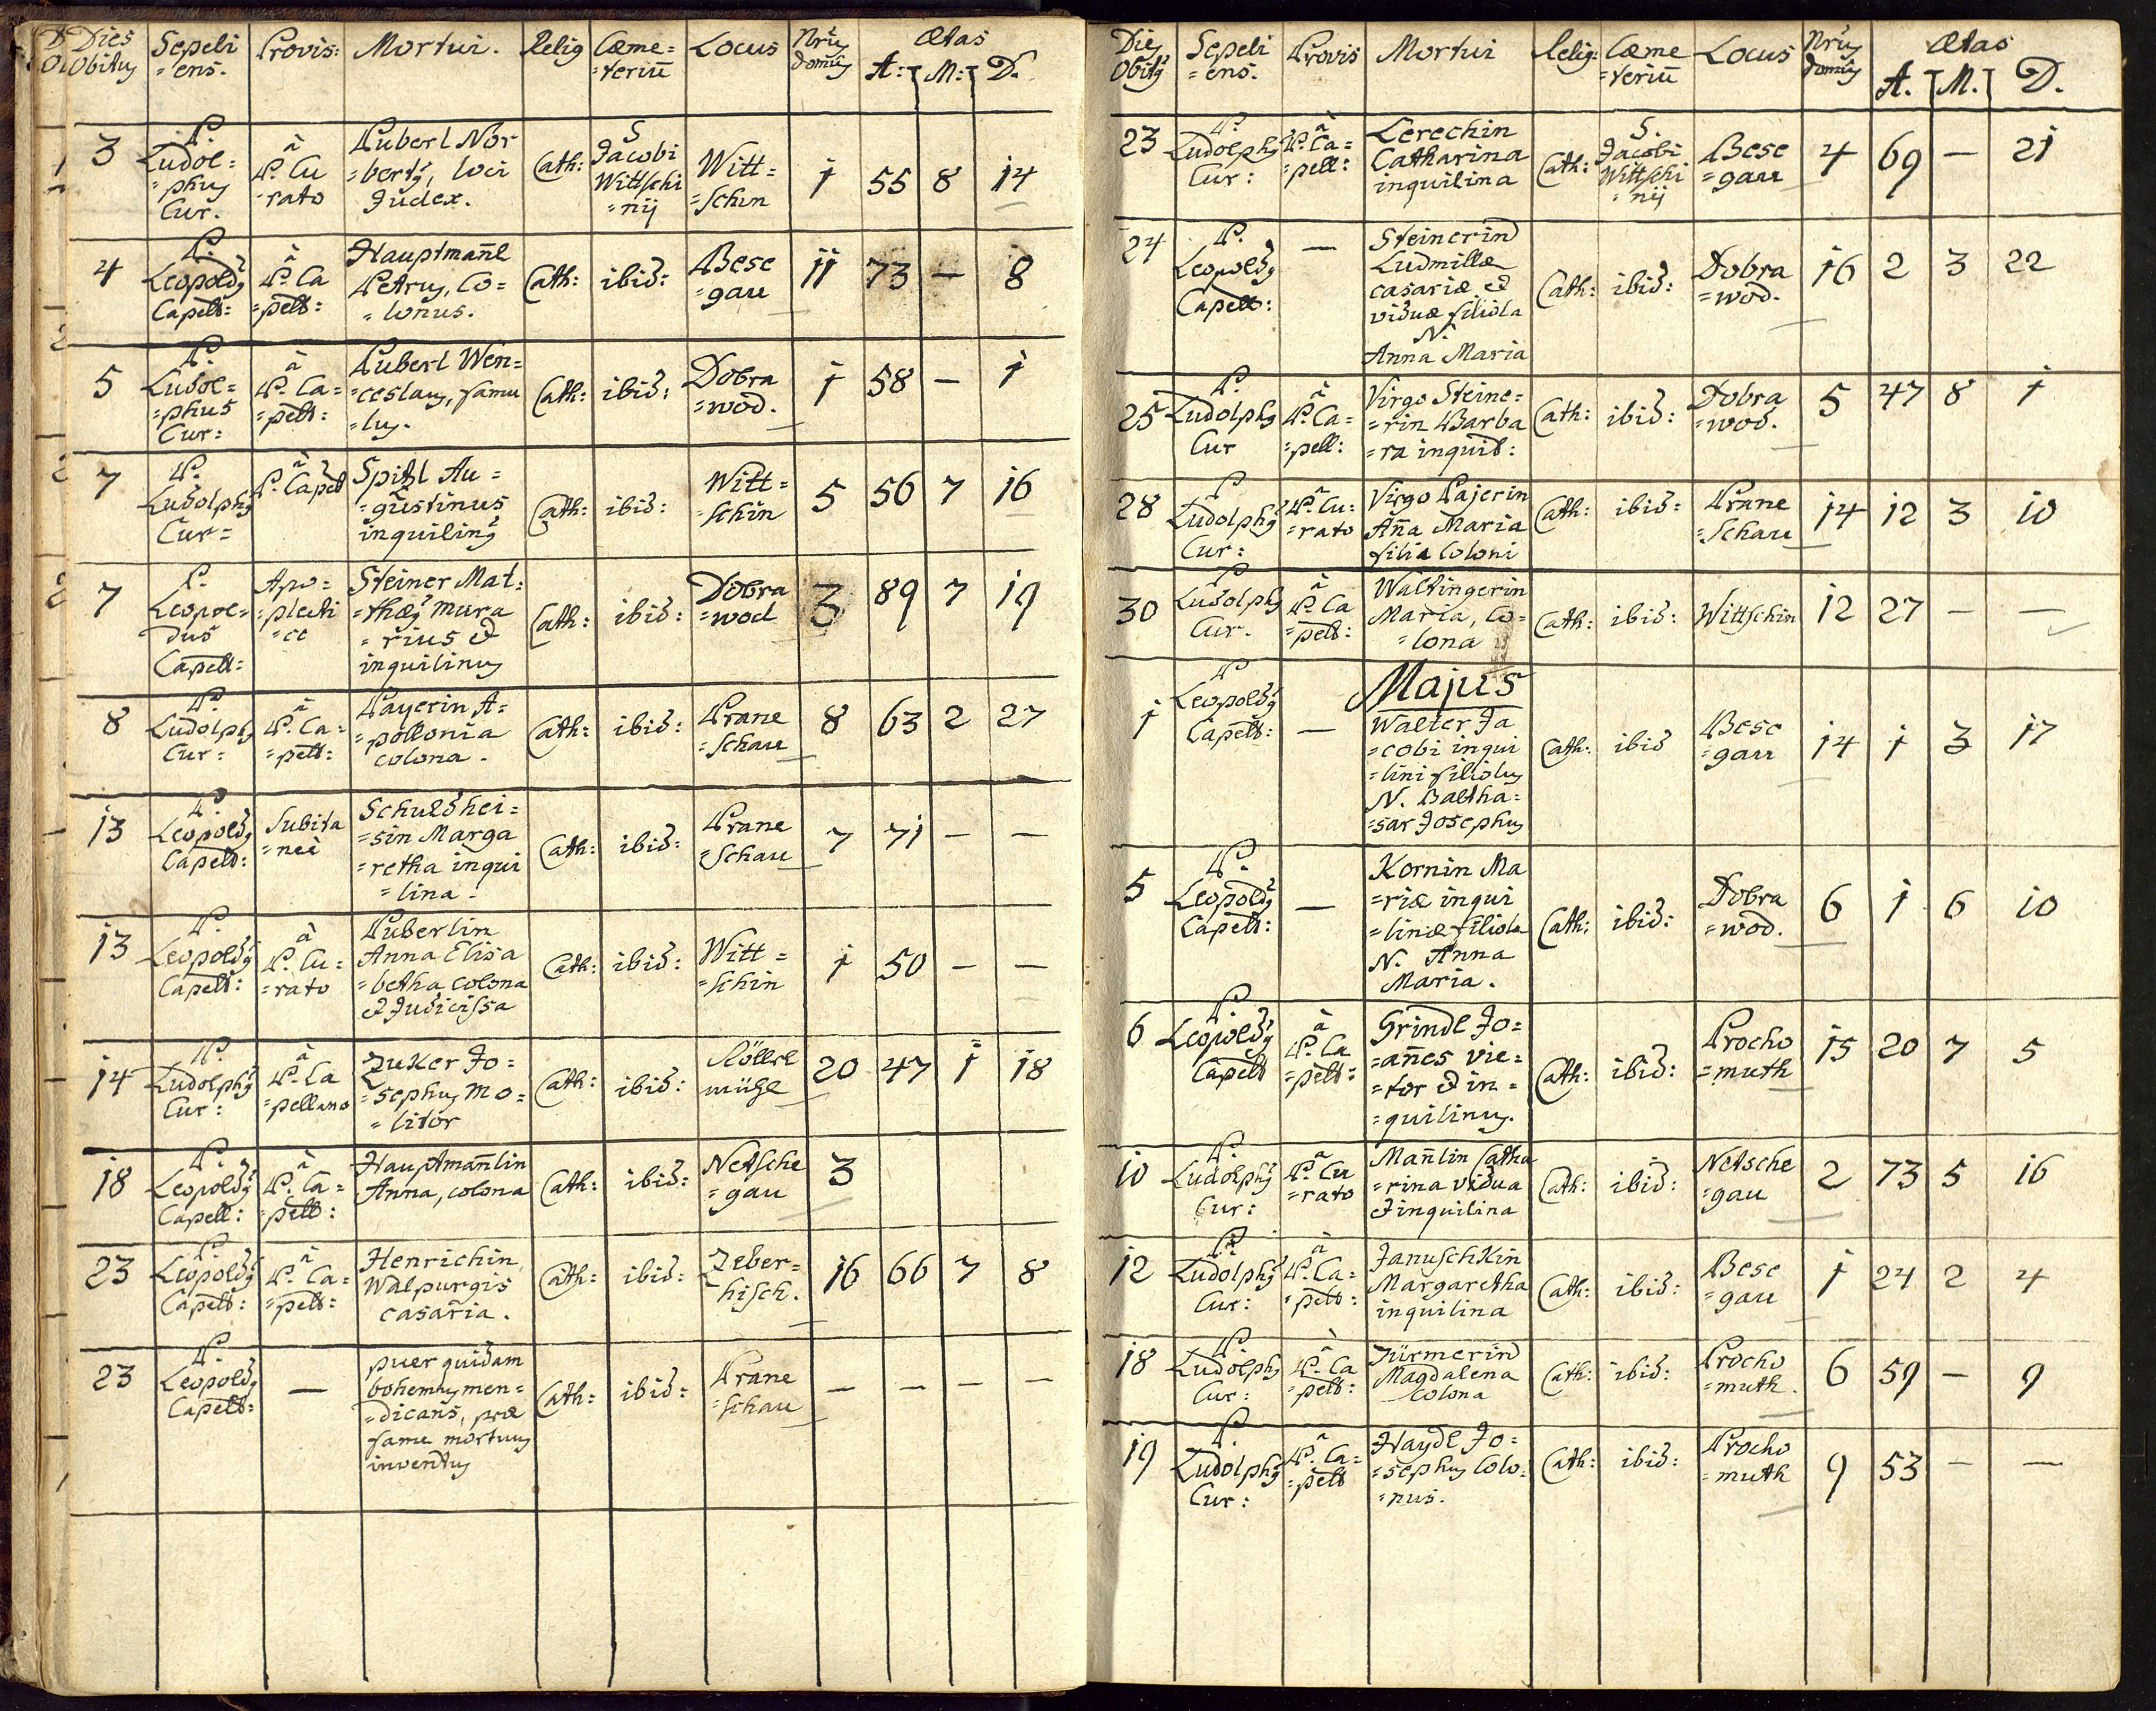 Dies Obitus | Sepeli=ens. | Provis: | Mortui. | Relig | Cæme=teriū | Locus | Nrus domus | Ætas A: M: D.
3 | P. Ludol=phus Cur. | à P. Cu rato | Puberl Nor=bertus, loci Judex. | Cath: | S Jacobi Wittschi=nij | Witt=schin | 1 | 55 | 8 | 14
4 | P. Leopoldus Capell: | à P. Ca=pell: | Hauptmañl Petrus, Co=lonus. | Cath: | ibid: | Bese=gau | 11 | 73 | — | 8
5 | P. Ludol=phus Cur: | à P. Ca=pell: | Puberl Wen=ceslaus, famu=lus. | Cath: | ibid: | Dobra=wod. | 1 | 58 | — | 1
7 | P. Ludolphus Cur= | à P. Capell | Spitzl Au=gustinus inquilinus | Cath: | ibid: | Witt=schin | 5 | 56 | 7 | 16
7 | P. Leopol=dus Capell: | Apo=plecti=ce | Steiner Mat=thæus mura=rius & inquilinus | Cath: | ibid: | Dobra=wod | 3 | 89 | 7 | 19
8 | P. Ludolphus Cur: | à P. Ca=pell: | Payerin A=pollonia colona. | Cath: | ibid: | Prane=schau | 8 | 63 | 2 | 27
13 | P. Leopoldus Capell: | Subita=neè | Schuldhei=sin Marga=retha inqui=lina. | Cath: | ibid: | Prane=schau | 7 | 71 | — | —
13 | P. Leopoldus Capell: | à P. Cu=rato | Puberlin Anna Elisa=betha colona & Judicissa | Cath: | ibid: | Witt=schin | 1 | 50 | — | —
14 | P. Ludolphus Cur: | à P. Ca=pellano | Zuker Jo=sephus Mo=litor | Cath: | ibid: | mühl | 20 | 47 | 1 | 18
18 | P. Leopoldus Capell: | à P. Ca=pell: | Hauptmañlin Anna, colona | Cath: | ibid: | Netsche=gau | 3
23 | P. Leopoldus Capell: | à P. Ca=pell: | Henrichin Walpurgis casaria. | Cath: | ibid: | Zeber=hisch. | 16 | 66 | 7 | 8
23 | P. Leopoldus Capell: | — | puer quidam bohemus men=dicans, præ fame mortuus inventus | Cath: | ibid: | Prane=schau | — | — | — | —
Dies Obitus | Sepeli=ens. | Provis | Mortui | Relig: | Cæme=teriū | Locus | Nrus domus | Ætas A. M. D.
23 | P. Ludolphus Cur: | à P. Ca=pell: | Lerechin Catharina inquilina | Cath: | S. Jacobi Wittschi=nij | Bese=gau | 4 | 69 | — | 21
24 | P. Leopoldus Capell: | — | Steinerin Ludmillæ casariæ & viduæ filiola N. Anna Maria | Cath: | ibid: | Dobra=wod. | 16 | 2 | 3 | 22
25 | P. Ludolphus Cur | à P. Ca=pell: | Virgo Steine=rin Barba=ra inquil: | Cath: | ibid: | Dobra=wod. | 5 | 47 | 8 | 1
28 | P Ludolphus Cur: | à P. Cu=rato | Virgo Pajerin Aña Maria filia Coloni | Cath: | ibid: | Prane=schau | 14 | 12 | 3 | 10
30 | P Ludolphus Cur. | à P. Ca=pell: | Waltingerin Maria, Co=lona | Cath: | ibid: | Wittschin | 12 | 27 | — | —
Majus
1 | P Leopoldus Capell: | — | Walter Ja=cobi inqui=lini filiolus N. Baltha=sar Josephus | Cath: | ibid | Bese=gau | 14 | 1 | 3 | 17
5 | P. Leopoldus Capell: | — | Kornin Ma=riæ inqui=linæ filiola N. Anna Maria. | Cath: | ibid: | Dobra=wod. | 6 | 1 | 6 | 10
6 | P. Leopoldus Capell | à P. Ca=pell: | Grindl Jo=añes vie=tor & in=quilinus. | Cath: | ibid: | Procho=muth | 15 | 20 | 7 | 5
10 | P. Ludolphus Cur: | à P. Cu=rato | Mañlin Catha=rina vidua & inquilina | Cath: | ibid: | Netsche=gau | 2 | 73 | 5 | 16
12 | P. Ludolphus Cur: | à P. Ca=pell: | Januschkin Margaretha inquilina | Cath: | ibid: | Bese=gau | 1 | 24 | 2 | 4
18 | P. Ludolphus Cur: | à P. Ca=pell: | Türmerin Magdalena colona | Cath: | ibid: | Procho=muth. | 6 | 59 | — | 9
19 | P. Ludolphus Cur: | à P. Ca=pell | Haydl Jo=sephus Colo=nus. | Cath: | ibid: | Procho=muth | 9 | 53 | — | —